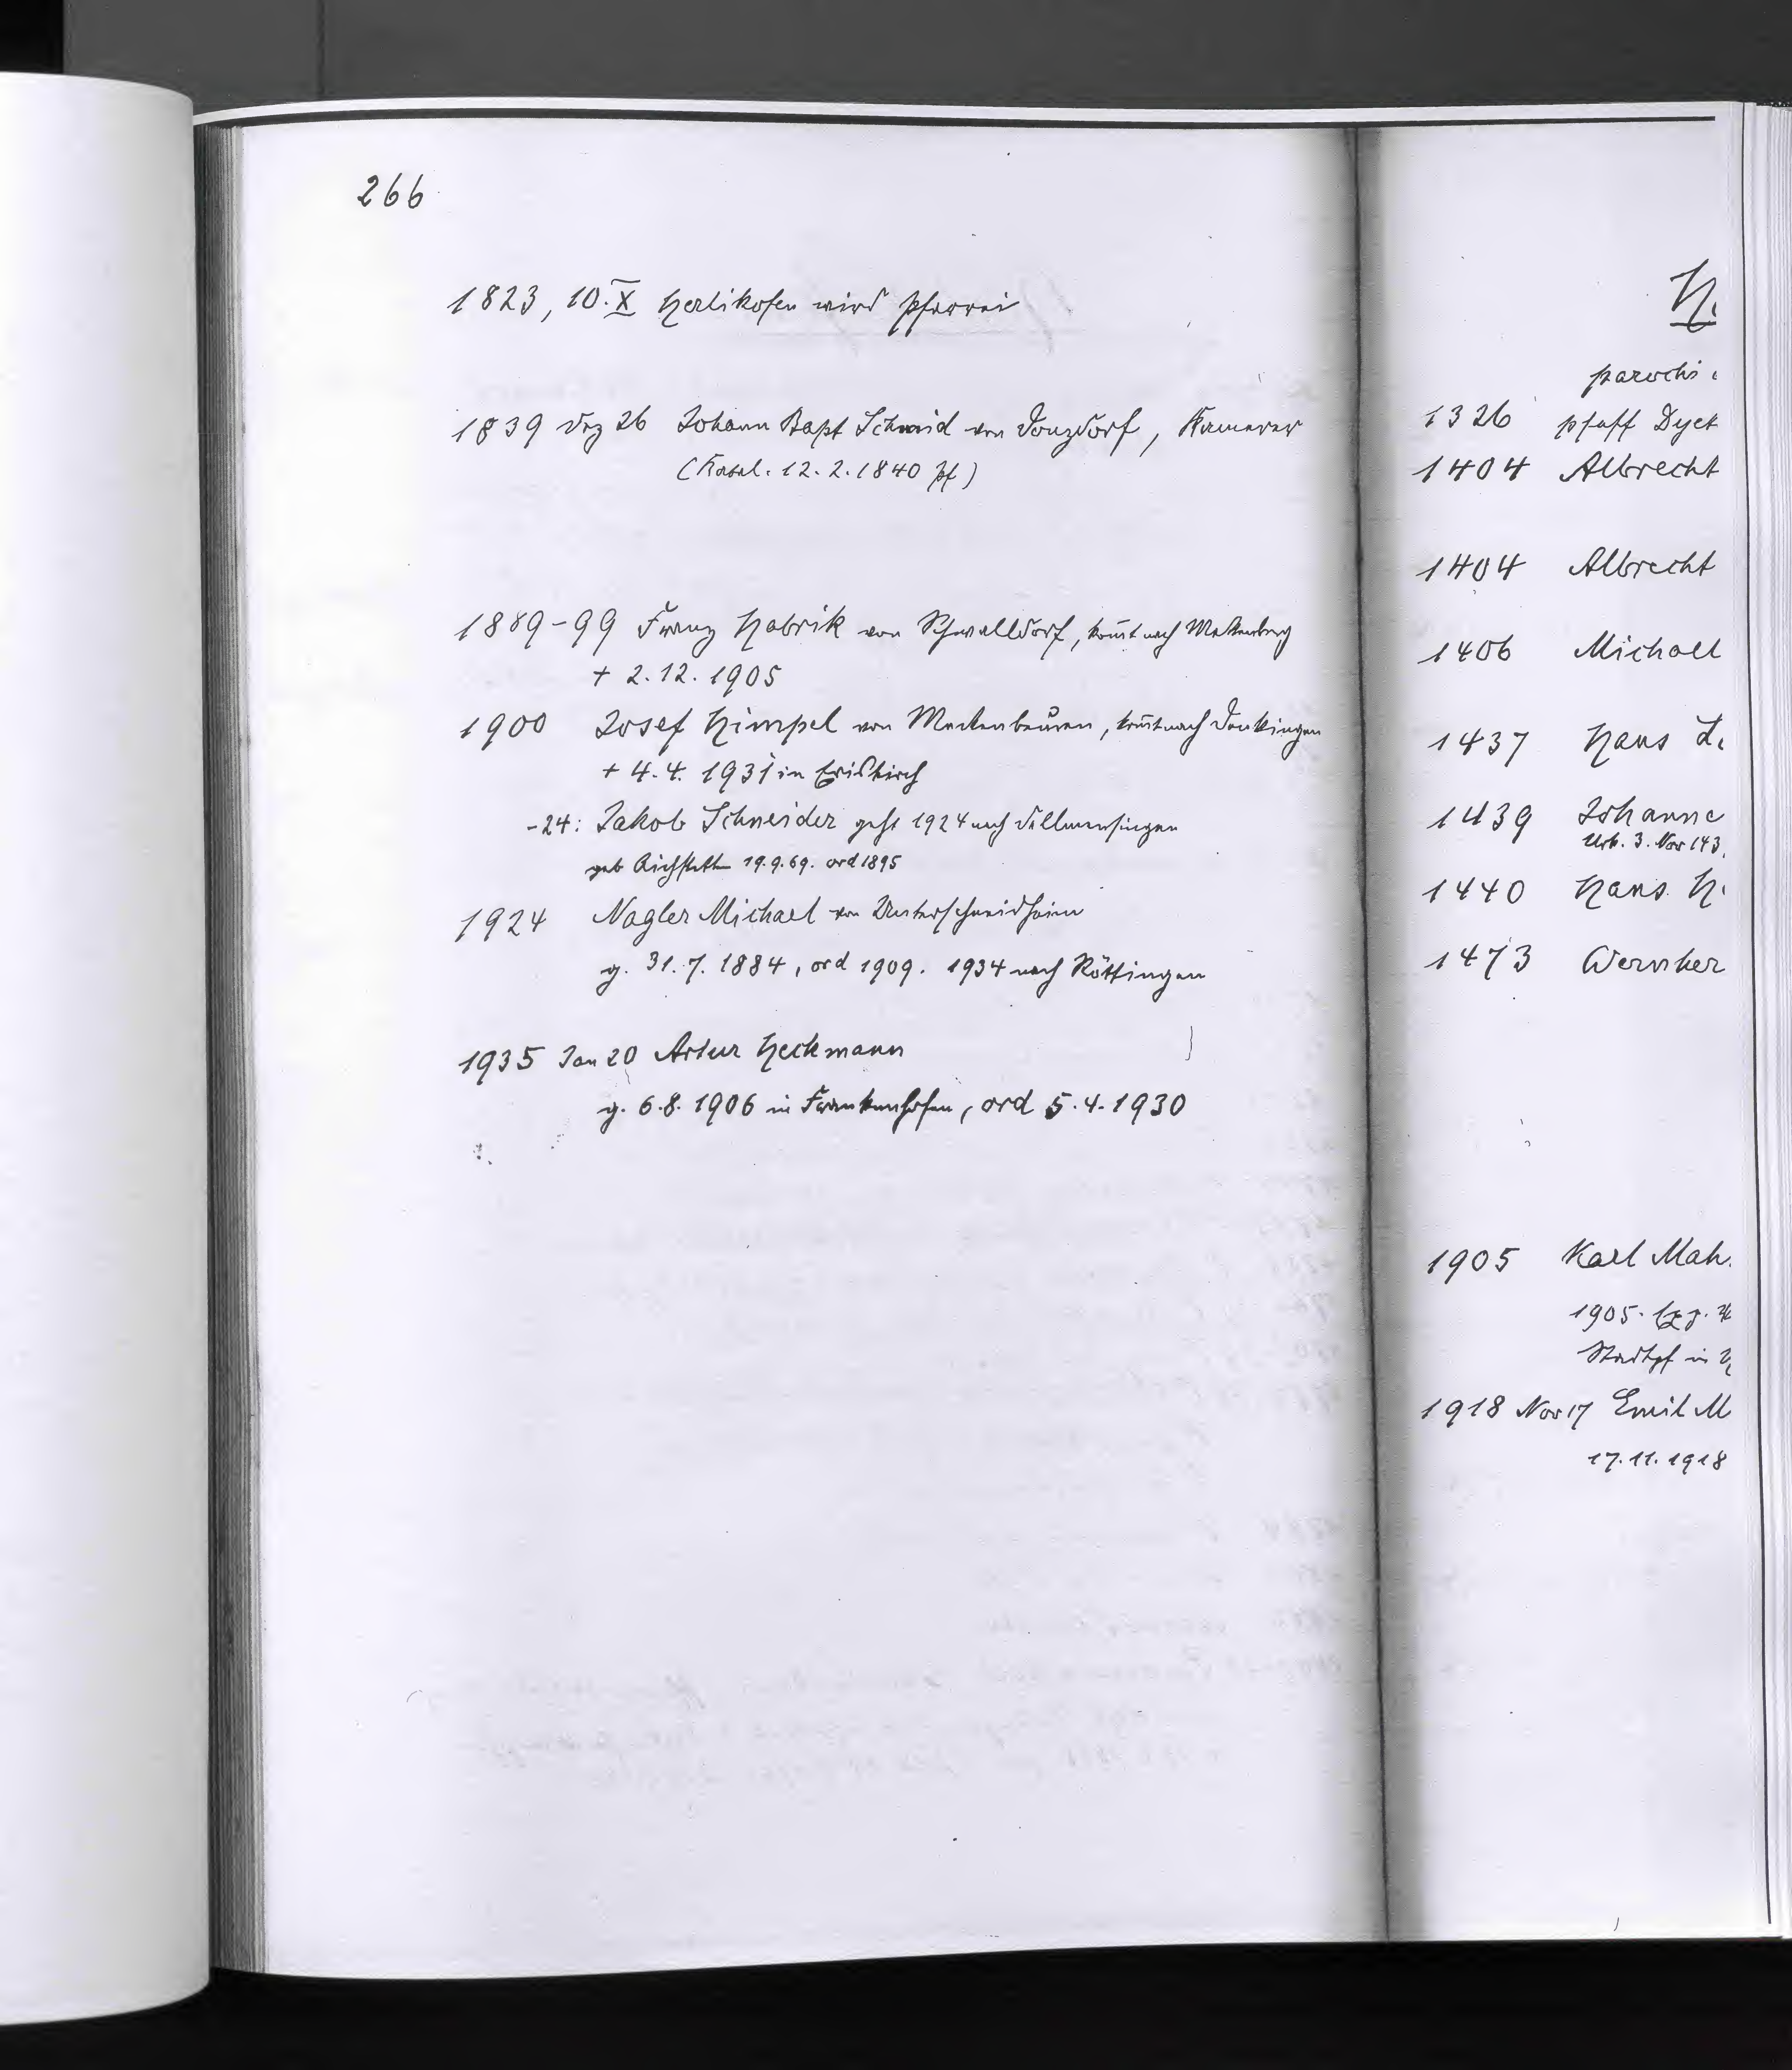 266
1823, 10. X Herlikofen wird Pfarrei
1839 Dez 26 Johann Bapt Schmid von Donzdorf, Kamerer
( 12. 2. 1840 Pf)
1889-99 Franz Habrik von Schwalldorf, kom̄t nach
+ 2. 12. 1905
1900 Josef Himpel von Meckenbeuren, kom̄t nach Denkingen
+ 4. 4. 1931 in Eriskirch
-24: Jakob Schneider geht 1924 nach Dellmensingen
geb Aichstetten 19. 9. 69. ord 1895
1924 Nagler Michael von Unterschneidheim
g. 31. 7. 1884, ord 1909. 1934 nach Röttingen
1935 Jan 20 Artur Heckmann
g. 6. 8. 1906 in Frankenhofen, ord 5. 4. 1930
H
parochi
1326 pfaff Dyet
1404 Albrecht
1404 Albrecht
1406 Michael
1437 Hans
1439 Johanne
Urk. 3. Nov 143
1440 Hans H
1473 Wernher
1905 Karl Mah
1905.
Stadtpf in
1918 Nov 17 Emil M
17. 11. 1918